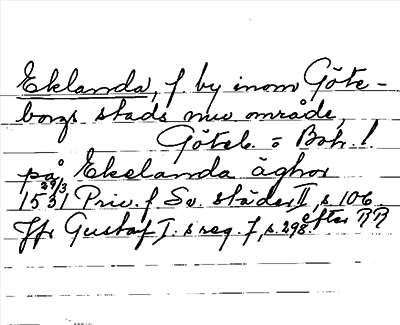 Eklanda, f. by inom Göte-
borgs stads nuv. område,
Göteb. o Boh. l.
på Ekelanda äghor
29/3 1531 Priv. f. Sv. städer II, s. 106.
Jfr Gustaf I:s reg. 7, s. 298. efter RR